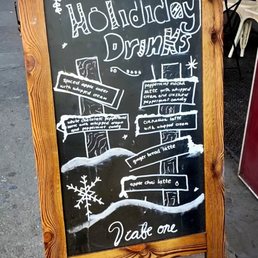 Holididay
Drinks
spiced apple cider
with whipped cream
white chocolate peppermint
with whipped cream
and peppermint candy
Peppermint mocha
latte with whipped
cream and crushed
peppermint candy
cinnamon latte
with whipped cream
ginger bread latte
apple chai latte
cafe one